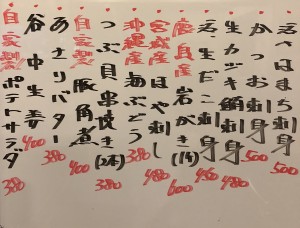 活はまち刺身 500
かつお刺身 500
生カツオ鯛刺身 480
活生だこ刺身 450
広島産 岩がき(1ヶ) 600
宮城産 ほや刺し 480
沖縄産 海ぶどう 380
つぶ貝串焼き(2本) 380
自家製 豚角煮 400
あさりバター 380
谷中生姜 400
自家製 ポテトサラダ 380